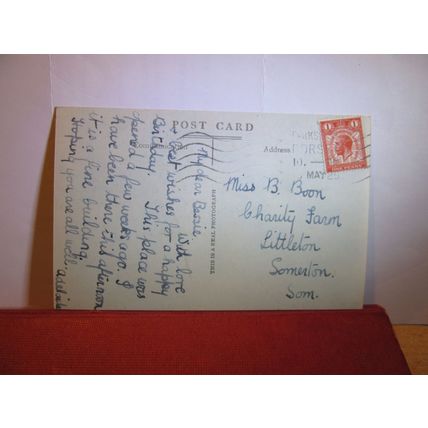 POST CARD
Communication
Address
My dear Bessie,
With love
& best wishes for a happy
Birthday. This place was
opened a few weeks ago. I
have been there this afternoon
it is a fine building.
Hoping you are all well
THIS IS A REAL PHOTOGRAPH
Miss B. Boon
Charity Farm
Littleton
Somerton.
Som.
1
1
ONE PENNY
PARKS
DORS
10.
MAY 29